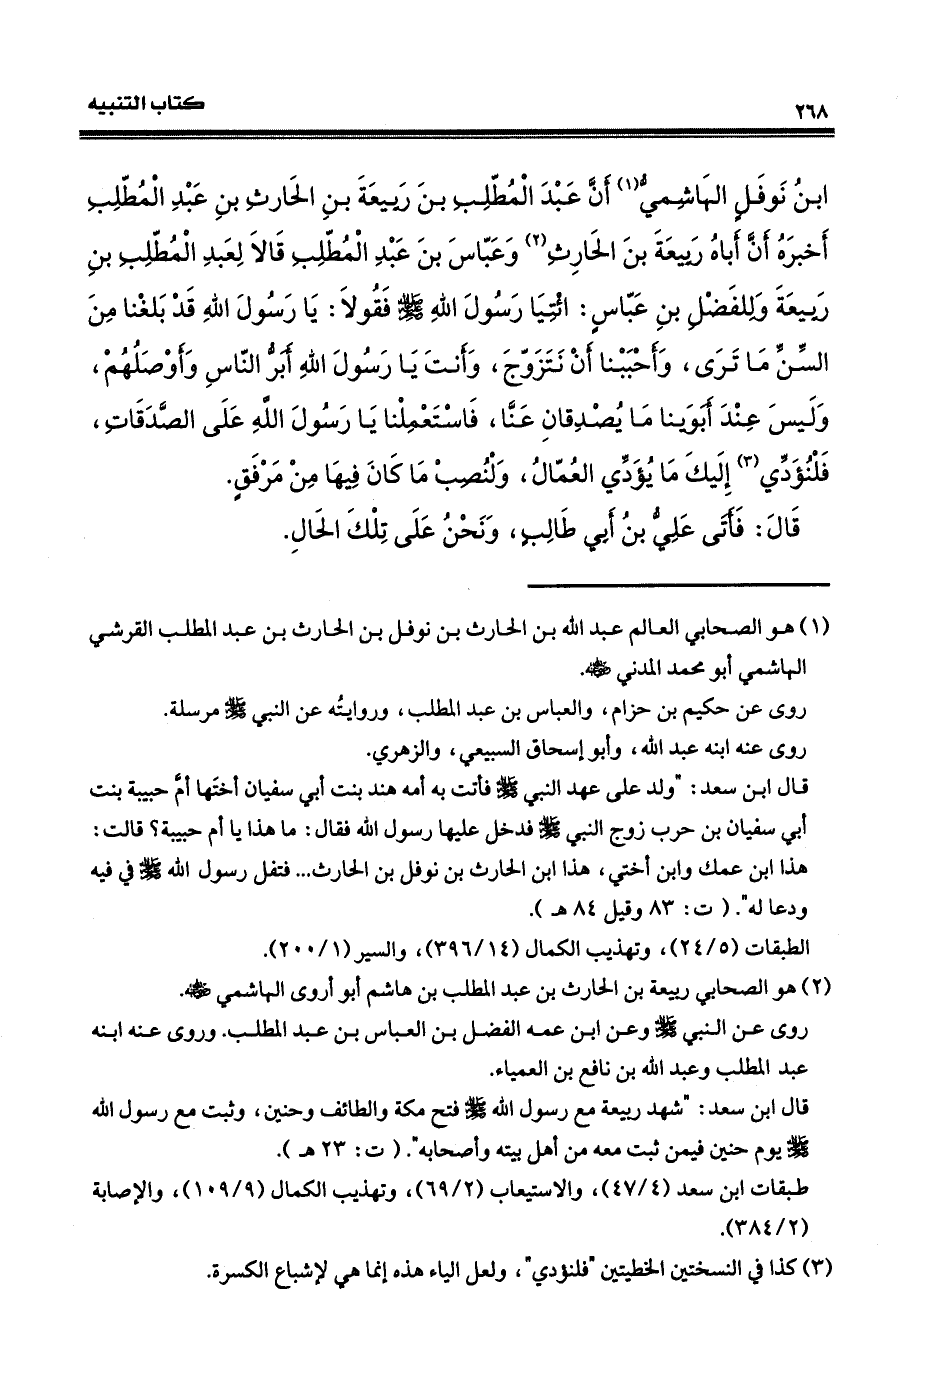 ٢٦٨ كتاب التنبيه
ابنُ نَوفَلٍ الهَاشِمِيُّ(١) أَنَّ عَبْدَ الْمُطَّلِبِ بنَ رَبِيعَةَ بنِ الحَارثِ بنِ عَبْدِ الْمُطَّلِبِ
أَخبرَهُ أَنَّ أَباهُ رَبِيعَةَ بنَ الحَارِثِ(٢) وَعَبَّاسَ بنَ عَبْدِ الْمُطَّلِبِ قَالاَ لِعَبدِ الْمُطَّلِبِ بنِ
رَبِيعَةَ وَلِلفَضْلِ بنِ عَبَّاسٍ: ائتِيَا رَسُولَ اللهِ ﷺ فَقُولاَ: يَا رَسُولَ اللهِ قَدْ بَلغْنا مِنَ
السِّنِّ مَا تَرَى، وَأَحْبَبْنا أَنْ نَتَزوَّجَ، وَأَنتَ يَا رَسُولَ اللهِ أَبَرُّ النّاسِ وَأَوْصَلُهُمْ،
وَلَيسَ عِنْدَ أَبَوَينا مَا يُصْدِقانِ عَنَّا، فَاسْتَعْمِلْنا يَا رَسُولَ اللَّهِ عَلَى الصَّدَقَاتِ،
فَلْنُؤَدِّي(٣) إِلَيكَ مَا يُؤَدِّي العُمَّالُ، وَلْنُصِبْ مَا كَانَ فِيهَا مِنْ مَرْفَقٍ.
قَالَ: فَأَتَى عَلِيُّ بنُ أَبي طَالِبٍ، وَنَحْنُ عَلَى تِلْكَ الحَالِ.
(١) هو الصحابي العالم عبد الله بن الحارث بن نوفل بن الحارث بن عبد المطلب القرشي
الهاشمي أبو محمد المدني ﵁.
روى عن حكيم بن حزام، والعباس بن عبد المطلب، وروايتُه عن النبي ﷺ مرسلة.
روى عنه ابنه عبد الله، وأبو إسحاق السبيعي، والزهري.
قال ابن سعد: "ولد على عهد النبي ﷺ فأتت به أمه هند بنت أبي سفيان أختَها أمَّ حبيبة بنت
أبي سفيان بن حرب زوج النبي ﷺ فدخل عليها رسول الله فقال: ما هذا يا أم حبيبة؟ قالت:
هذا ابن عمك وابن أختي، هذا ابن الحارث بن نوفل بن الحارث... فتفل رسول الله ﷺ في فيه
ودعا له". ( ت: ٨٣ وقيل ٨٤ هـ ).
الطبقات (٢٤/٥)، وتهذيب الكمال (٣٩٦/١٤)، والسير(٢٠٠/١).
(٢) هو الصحابي ربيعة بن الحارث بن عبد المطلب بن هاشم أبو أروى الهاشمي ﵁.
روى عن النبي ﷺ وعن ابن عمه الفضل بن العباس بن عبد المطلب. وروى عنه ابنه
عبد المطلب وعبد الله بن نافع بن العمياء.
قال ابن سعد: "شهد ربيعة مع رسول الله ﷺ فتح مكة والطائف وحنين، وثبت مع رسول الله
ﷺ يوم حنين فيمن ثبت معه من أهل بيته وأصحابه". ( ت: ٢٣ هـ ).
طبقات ابن سعد (٤٧/٤)، والاستيعاب (٦٩/٢)، وتهذيب الكمال (١٠٩/٩)، والإصابة
(٣٨٤/٢).
(٣) كذا في النسختين الخطيتين "فلنؤدي"، ولعل الياء هذه إنما هي لإشباع الكسرة.